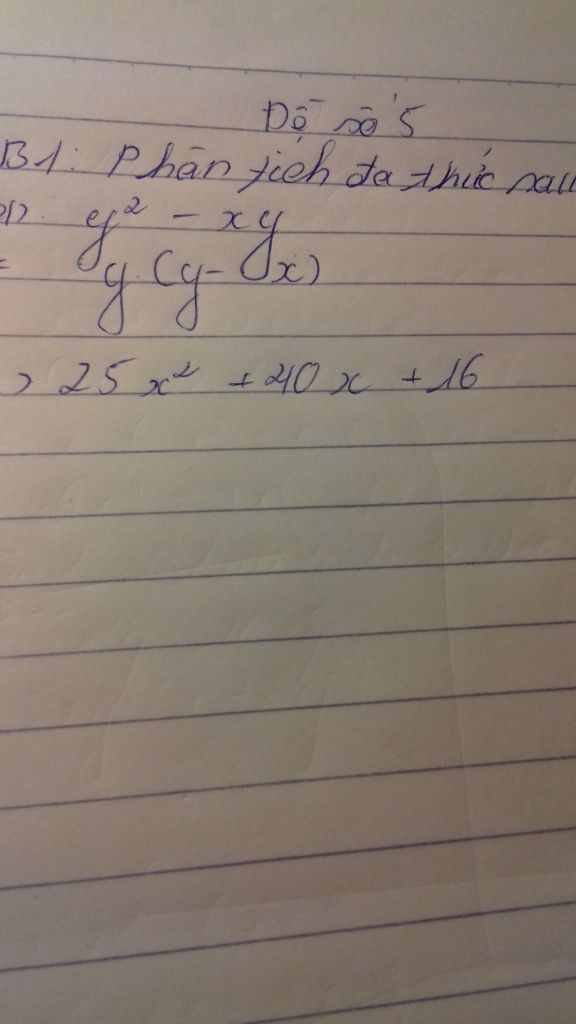 Đề số 5
B1: Phân tích đa thức sau
a) y² - xy
= y (y - x)
) 25x² + 40x + 16